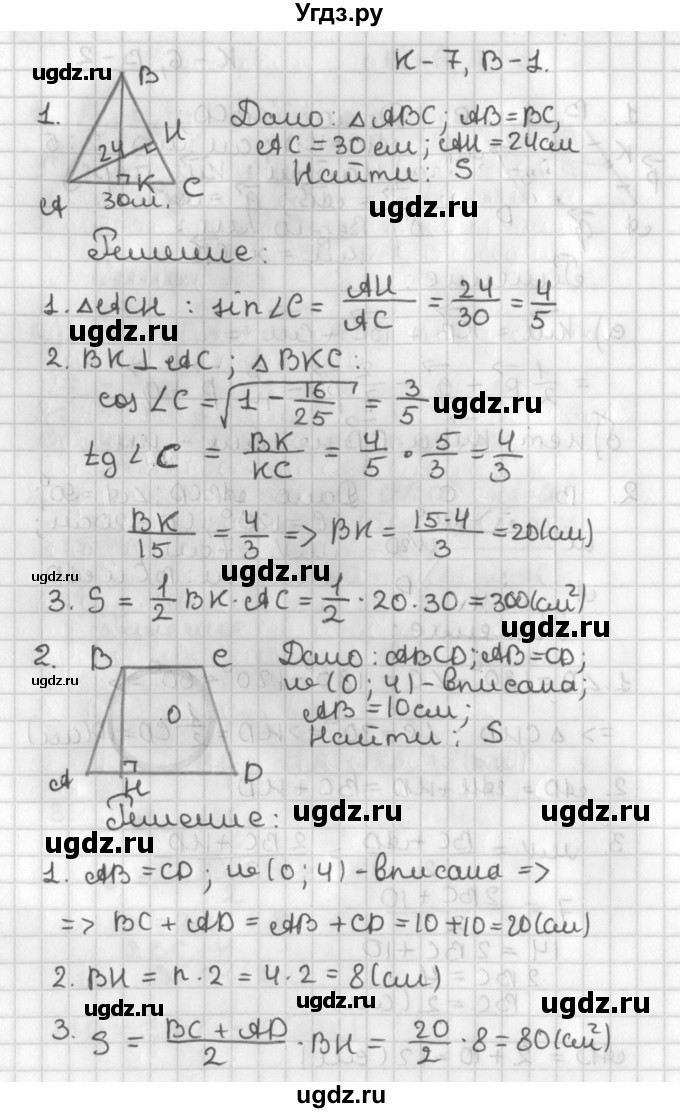 Угдз.ру
К-7, В-1.
ugdz.ru
B
1.
H
24
A
K
C
30см.
Дано: △ABC; AB=BC,
AC=30см; AH=24см
Найти: S
ugdz.ru
Решение:
1. △ACH : sin∠C = AH/AC = 24/30 = 4/5
ugdz.ru
2. BK⊥AC; △BKC:
cos∠C = √(1 - 16/25) = 3/5
ugdz.ru
tg∠C = BK/KC = 4/5 · 5/3 = 4/3
BK/15 = 4/3 => BK = 15·4/3 = 20(см)
ugdz.ru
ugdz.ru
3. S = 1/2 BK·AC = 1/2 · 20·30 = 300(см²)
ugdz.ru
2.
B
C
O
A
H
D
ugdz.ru
Дано: ABCD; AB=CD;
(O; 4) - вписана;
AB=10см;
Найти: S
Решение:
ugdz.ru
ugdz.ru
1. AB=CD; (O; 4) - вписана =>
=> BC+AD = AB+CD=10+10=20(см)
2. BH = r·2 = 4·2 = 8(см)
ugdz.ru
ugdz.ru
ugdz.ru
3. S = BC+AD/2 · BH = 20/2 · 8 = 80(см²)
ugdz.ru